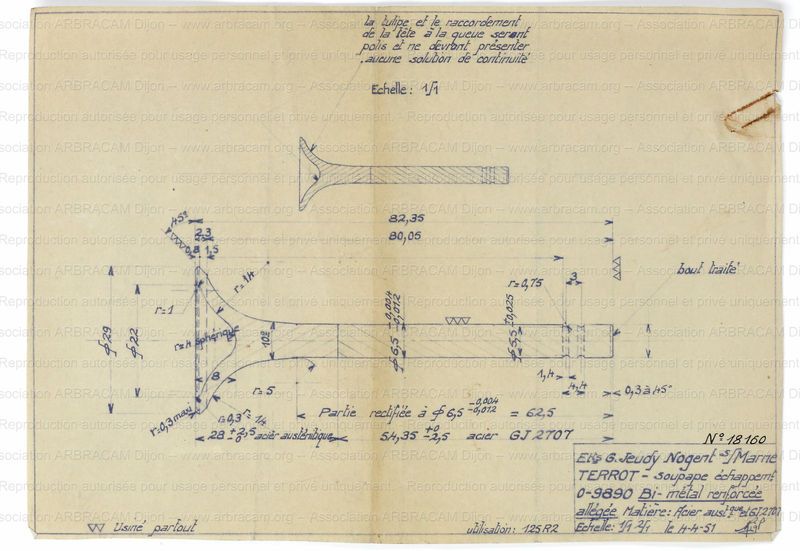 la tulipe et le raccordement
de la tête à la queue seront
polis et ne devront présenter
aucune solution de continuité
Echelle: 1/1
82,35
80,05
45°
2,3
0,8 1,5
r=14
r=0,75
3
bout traité
r=1
ϕ 29
ϕ 22
r=4 sphérique
10°
ϕ 6,5 -0,004 -0,012
ϕ 5,5 ±0,025
8
r=5
1,4
4,4
0,3 à 45°
r=0,3 max
r=0,3
r=14
Partie rectifiée à ϕ 6,5 -0,004 -0,012 = 62,5
28 +2,5 -0 acier austénitique
54,35 +0 -2,5 acier GJ 2707
N° 18160
Ets G. Jeudy Nogent s/Marne
TERROT - soupape échappemt
0-9890 Bi-métal renforcée
allégée Matière: Acier austque et GJ 2707
Echelle: 1/1 2/1 le 4-4-51
Usiné partout
utilisation: 125 R2
Association ARBRACAM Dijon -- www.arbracam.org
Reproduction autorisée pour usage personnel et privé uniquement